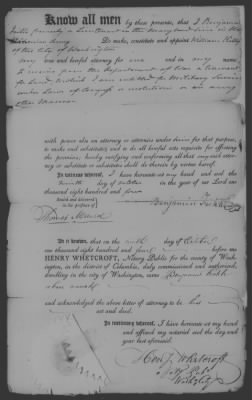 Know all men by these presents, that I Benjamin
formerly a Lieutenant in the Maryland line in the
Army Do make, constitute and appoint William
of the City of Washington
my true and lawful attorney for me and in my name
to receive from the Department of War a Warrant
for Land which I am entitled to for Military Services
under Laws of Congress or resolutions or in any
other Manner
with power also an attorney or attornies under him for that purpose,
to make and substitute; and to do all lawful acts requisite for effecting
the premises; hereby ratifying and confirming all that my said attor-
ney or substitute shall do therein by virtue hereof.
In witness whereof, I have hereunto set my hand and seal the
day of October in the year of our Lord one
thousand eight hundred and four
Sealed and delivered
in the presence of
Benjamin
Thomas
Be it known, that on the day of October
one thousand eight hundred and four before me
HENRY WHETCROFT, Notary Public for the county of Wash-
ington, in the district of Columbia, duly commissioned and authorised,
dwelling in the city of Washington, came Benjamin
above named
and acknowledged the above letter of attorney to be his
act and deed.
In testimony whereof, I have hereunto set my hand
and affixed my notarial seal the day and
year last aforesaid.
Henry Whetcroft
Noty Pub